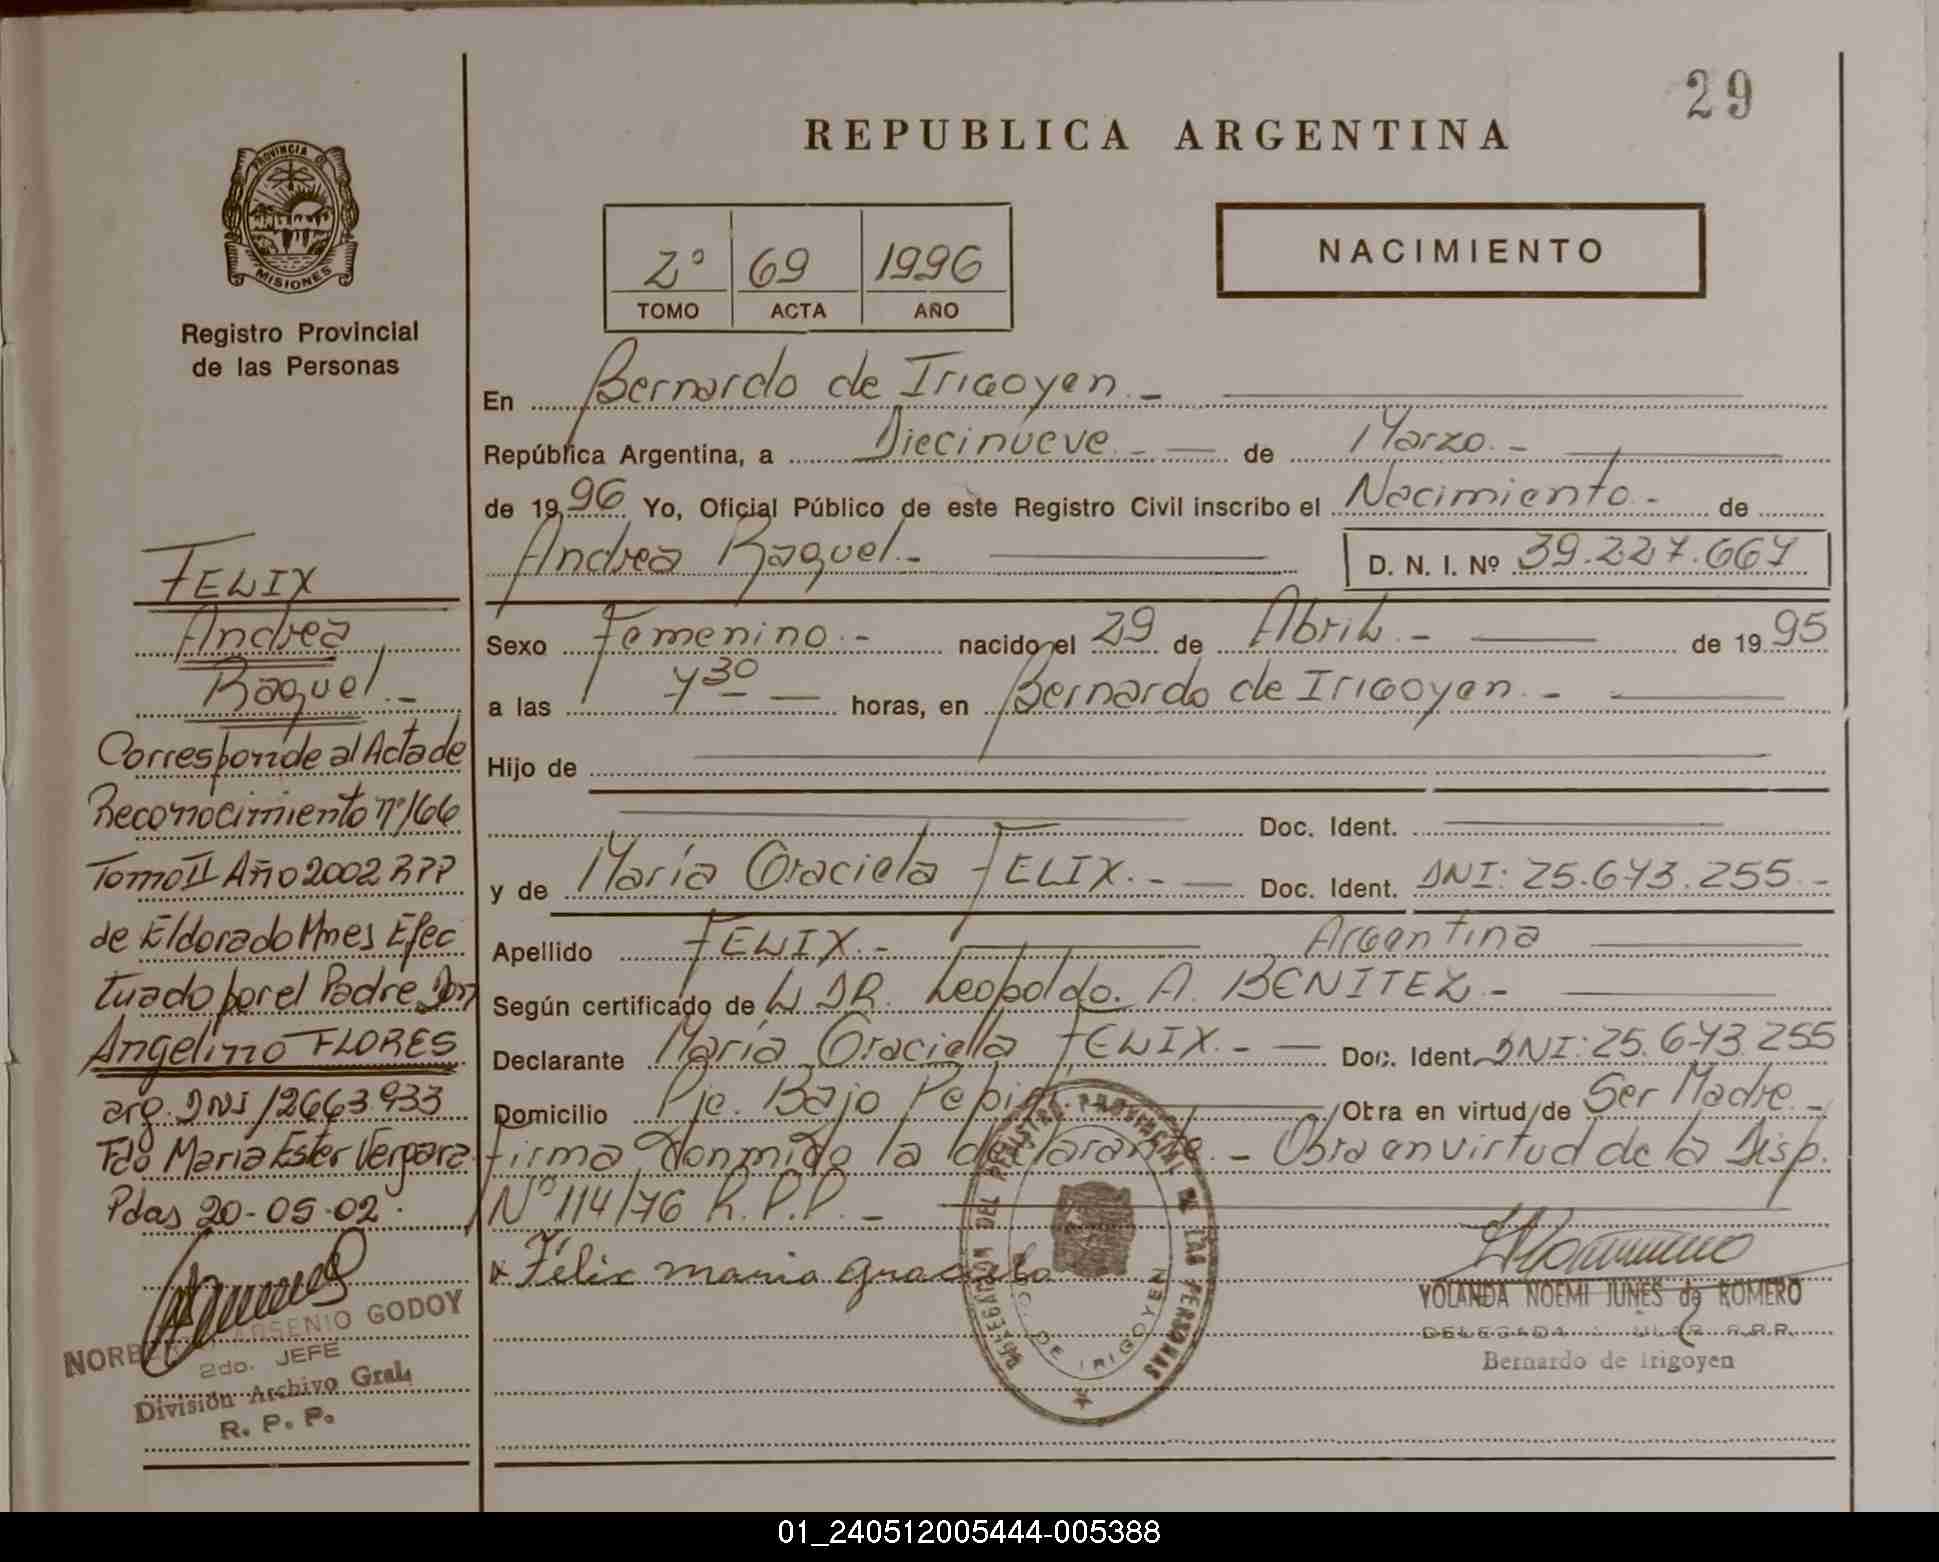 29
REPUBLICA ARGENTINA
PROVINCIA DE
MISIONES
Registro Provincial
de las Personas
2º 69 1996
TOMO ACTA AÑO
NACIMIENTO
En Bernardo de Irigoyen.-
República Argentina, a Diecinueve.- de Marzo.-
de 1996 Yo, Oficial Público de este Registro Civil inscribo el Nacimiento.- de
Andrea Raquel.- D. N. I. Nº 39.227.667
Sexo Femenino.- nacido el 29 de Abril.- de 1995
a las 7 30 horas, en Bernardo de Irigoyen.-
Hijo de
Doc. Ident.
y de María Graciela FELIX.- Doc. Ident. DNI: 25.673.255.-
Apellido FELIX.- Argentina
Según certificado de L DR. Leopoldo. A. BENITEZ.-
Declarante María Graciella FELIX.- Doc. Ident. DNI: 25.673.255
Domicilio Pje. Bajo Pepirí /Otra en virtud/de Ser Madre.-
firma Conmigo la declarante.- Obra en virtud de la Disp.
Nº 114/76 R.P.P.-
x Félix maria graciela
FELIX
Andrea
Raquel.-
Corresponde al Acta de
Reconocimiento nº 166
Tomo II Año 2002 RPP
de Eldorado Mnes Efec
tuado por el Padre Don
Angelino FLORES
arg. DNI 12663.933
Fdo Maria Ester Vergara
Pdas 20-05-02.
ARSENIO GODOY
2do. JEFE
División Archivo Gral.
R. P. P.
DELEGACION DEL REGISTRO PROVINCIAL DE LAS PERSONAS
BDO. DE IRIGOYEN
YOLANDA NOEMI JUNES de ROMERO
DELEGADA TITULAR R.P.P.
Bernardo de Irigoyen
01_240512005444-005388